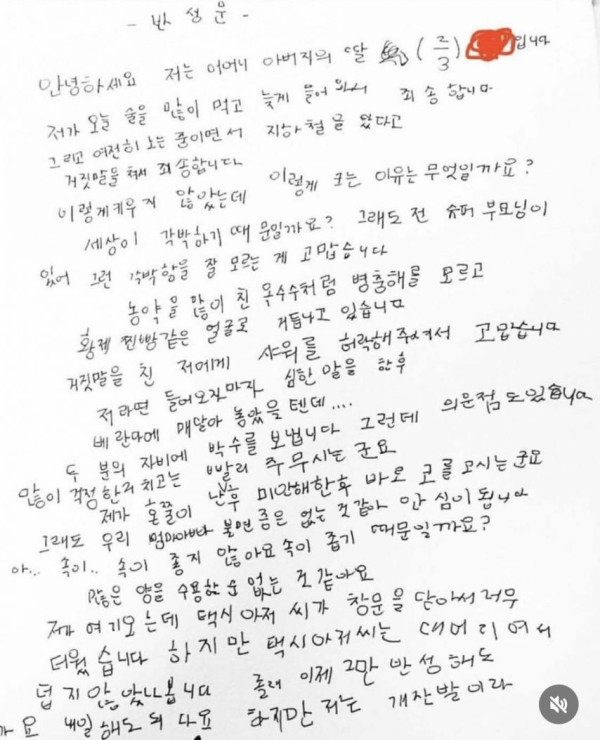 - 반 성 문 -
안녕하세요 저는 어머니 아버지의 딸 (2/3) 입니다
저가 오늘 술을 많이 먹고 늦게 들어와서 죄송합니다
그리고 여전히 노는 중이면서 지하철을 왔다고
거짓말을 쳐서 죄송합니다
이렇게 키우지 않았는데 이렇게 크는 이유는 무엇일까요?
세상이 각박하기 때문일까요? 그래도 전 슈퍼 부모님이
있어 그런 각박함을 잘 모르는 게 고맙습니다
농약을 많이 친 옥수수처럼 병충해를 모르고
황제 찐빵같은 얼굴로 거듭나고 있습니다
거짓말을 친 저에게 샤워를 허락해 주셔서 고맙습니다
저라면 들어오자마자 심한 말을 한 후
베란다에 매달아 놓았을 텐데....
두 분의 자비에 박수를 보냅니다 그런데 의문점도 있습니다
많이 걱정한거 치고는 빨리 주무시는 군요
제가 혼쭐이 난후 미안해한후 바로 코를 고시는군요
그래도 우리 엄마아빠 불면증은 없는 것 같아 안심이 됩니다
아... 속이.. 속이 좋지 않아요 속이 좁기 때문일까요?
많은 양을 수용할 순 없는 것 같아요
저가 여기오는데 택시아저씨가 창문을 닫아서 너무
더웠습니다 하지만 택시아저씨는 대머리여서
덥지 않았나 봅니다 졸려 이제 그만 반성해도
가요 내일 해도 되나요 하지만 저는 개잔발이라